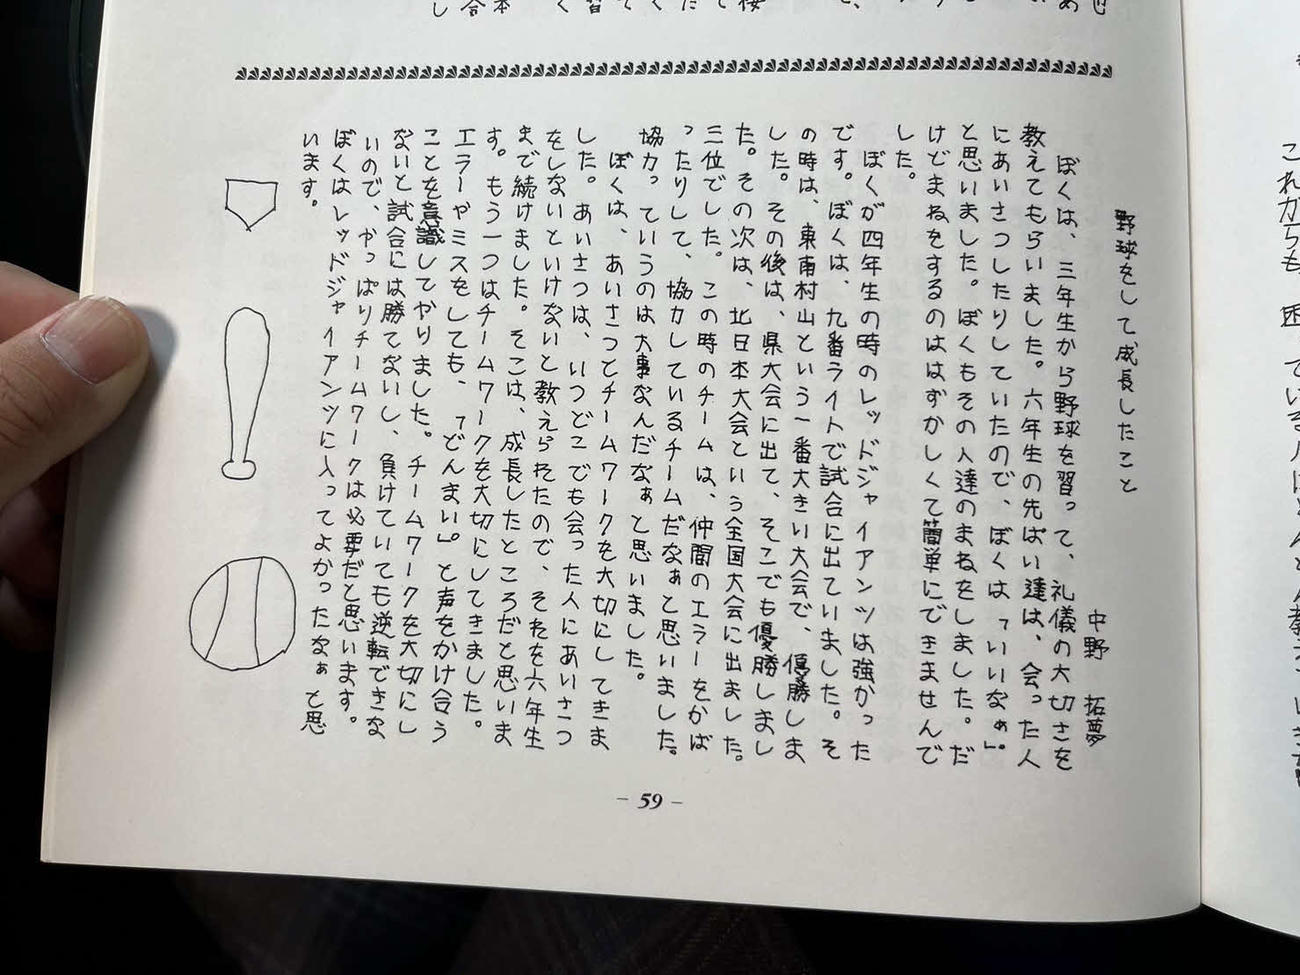 野球をして、成長したこと
中野 拓夢
ぼくは、三年生から野球を習って、礼儀の大切さを
教えてもらいました。六年生の先ぱい達は、会った人
にあいさつしたりしていたので、ぼくは「いいなぁ」。
と思いました。ぼくもその人達のまねをしました。だ
けどまねをするのははずかしくて簡単にできませんで
した。
ぼくが四年生の時のレッドジャイアンツは強かった
です。ぼくは、九番ライトで試合に出ていました。そ
の時は、東南村山という一番大きい大会で、優勝しま
した。その後は、県大会に出て、そこでも優勝しまし
た。その次は、北日本大会という全国大会に出ました。
三位でした。この時のチームは、仲間のエラーをかば
ったりして、協力しているチームだなぁと思いました。
協力っていうのは大事なんだなぁと思いました。
ぼくは、あいさつとチームワークを大切にしてきま
した。あいさつは、いつどこでも会った人にあいさつ
をしないといけないと教えられたので、それを六年生
まで続けました。そこは、成長したところだと思いま
す。もう一つはチームワークを大切にしてきました。
エラーやミスをしても、「どんまい」。と声をかけ合う
ことを意識してやりました。チームワークを大切にし
ないと試合には勝てないし、負けていても逆転できな
いので、やっぱりチームワークは必要だと思います。
ぼくはレッドジャイアンツに入ってよかったなぁと思
います。
- 59 -